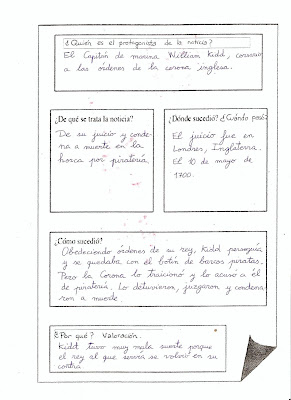 ¿Quién es el protagonista de la noticia?
El Capitán de marina William Kidd, corsario
a las órdenes de la corona inglesa.
¿De qué se trata la noticia?
De su juicio y conde-
na a muerte en la
horca por piratería.
¿Dónde sucedió? ¿Cuándo pasó?
El juicio fue en
Londres, Inglaterra.
El 10 de mayo de
1700.
¿Cómo sucedió?
Obedeciendo órdenes de su rey, Kidd perseguía
y se quedaba con el botín de barcos piratas.
Pero la Corona lo traicionó y lo acusó a él
de piratería. Lo detuvieron, juzgaron y condena
ron a muerte
¿Por qué? Valoración.
Kidd tuvo muy mala suerte porque
el rey al que servía se volvió en su
contra